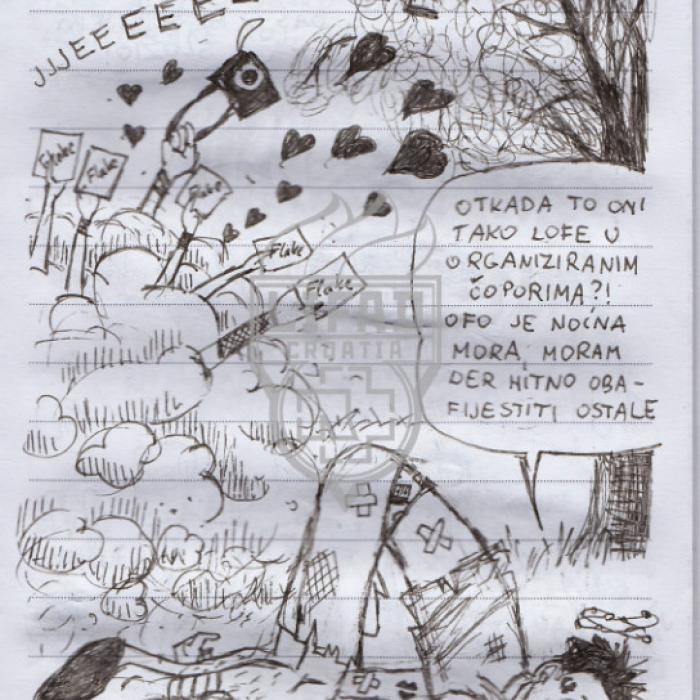 JJJEEEEEE
Flake
Flake
Flake
Flake
Flake
OTKADA TO ONI
TAKO LOFE U
ORGANIZIRANIM
ČOPORIMA?!
OFO JE NOĆNA
MORA, MORAM
DER HITNO OBA-
FIJESTITI OSTALE
CROATIA